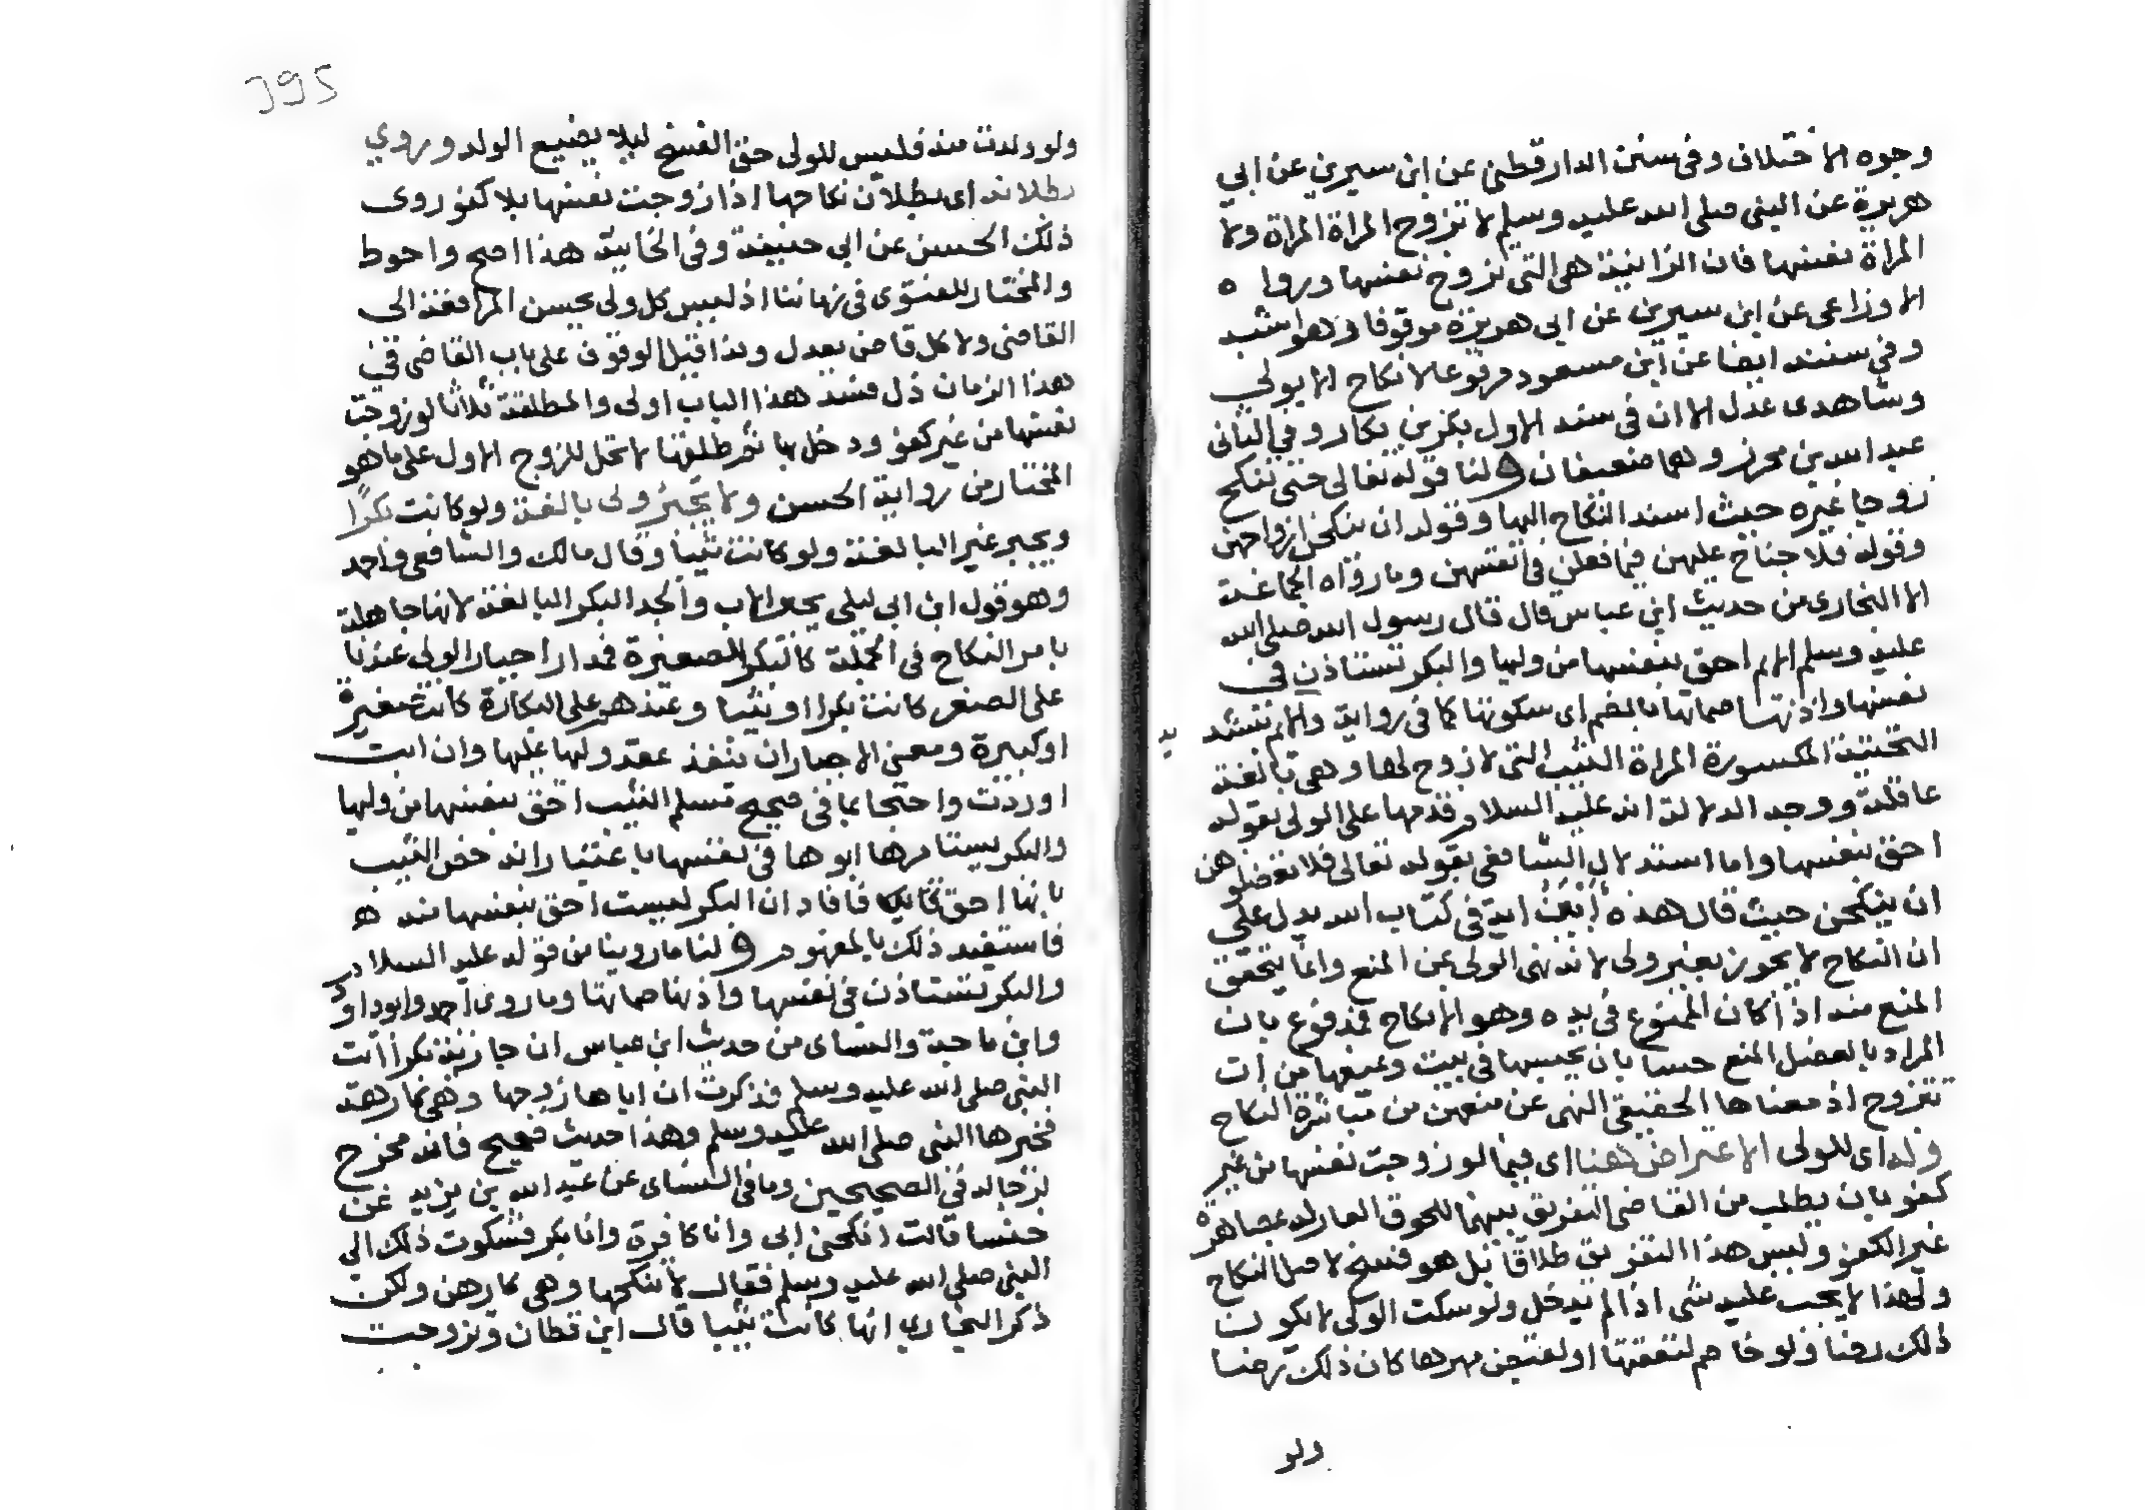 وجوه الاختلاف وفي سنن الدارقطني عن ابن سيرين عن ابي
هريرة عن النبي صلى الله عليه وسلم لا تزوج المراة المراة ولا
المراة نفسها فان الزانية هي التي تزوج نفسها ورواه
الاوزاعي عن ابن سيرين عن ابي هريرة موقوفا وهو اشبه
وفي سننه ايضا عن ابن مسعود مرفوعا لا نكاح الا بولي
وشاهدى عدل الا ان في سند الاول بكر بن بكار وفي الثاني
عبد الله بن محرز وهما ضعيفان ولنا قوله تعالى حتى تنكح
زوجا غيره حيث اسند النكاح اليها وقوله ان ينكحن ازواجهن
وقوله فلا جناح عليهن فيما فعلن في انفسهن وما رواه الجماعة
الا البخاري من حديث ابن عباس قال قال رسول الله صلى الله
عليه وسلم الايم احق بنفسها من وليها والبكر تستاذن في
نفسها واذنها صماتها بالضم اى سكوتها كما في رواية والايم بتشديد
التحتية المكسورة المراة الثيب التي لا زوج لها وهي بالغة
عاقلة ووجه الدلالة انه عليه السلام قدمها على الولى بقوله
احق بنفسها واما استدلال الشافعي بقوله تعالى فلا تعضلوهن
ان ينكحن حيث قال هذه أبين اية في كتاب الله يدل على
ان النكاح لا يجوز بغير ولى لانه نهى الولى عن المنع وانما يتحقق
المنع منه اذا كان الممنوع في يده وهو الانكاح فمدفوع بان
المراد بالعضل المنع حسا بان يحبسها في بيت ويمنعها من ان
تتزوج اذ معناها الحقيقي النهي عن منعهن من مباشرة النكاح
وله اى للولى الاعتراض هنا اى فيما لو زوجت نفسها من غير
كفو بان يطلب من القاضى التفريق بينهما للحوق العار له بمصاهرة
غير الكفو وليس هذا التفريق طلاقا بل هو فسخ لاصل النكاح
ولهذا لا يجب عليه شى اذا لم يدخل ولو سكت الولى لا يكون
ذلك رضا ولو خاصم لنفقتها او لقبض مهرها كان ذلك رضا
ولو
395
ولو ولدت منه فليس للولى حق الفسخ ليلا يضيع الولد وروي
بطلانه اى بطلان نكاحها اذا زوجت نفسها بلا كفو روى
ذلك الحسن عن ابي حنيفة وفي الخانية هذا اصح واحوط
والمختار للفتوى في زماننا اذ ليس كل ولى يحسن المرافعة الى
القاضى ولا كل قاض يعدل ولذا قيل الوقوف على باب القاضى في
هذا الزمان ذل فسد هذا الباب اولى والمطلقة ثلاثا لو زوجت
نفسها من غير كفو ودخل بها ثم طلقها لا تحل للزوج الاول على ما هو
المختار من رواية الحسن ولا يجبر ولى بالغة ولو كانت بكرًا
ويجبر غير البالغة ولو كانت ثيبا وقال مالك والشافعي واحمد
وهو قول ابن ابي ليلى يجبر الاب والجد البكر البالغة لانها جاهلة
بامر النكاح في الجملة كالبكر الصغيرة فمدار اجبار الولى عندنا
على الصغر كانت بكرا او ثيبا وعندهم على البكارة كانت صغيرة
او كبيرة ومعنى الاجبار ان ينفذ عقد وليها عليها وان ابت
او ردت واحتجا بما في صحيح مسلم الثيب احق بنفسها من وليها
والبكر يستامرها ابوها في نفسها باعتبار انه خص الثيب
بانها احق فافاد ان البكر ليست احق بنفسها منه
فاستفيد ذلك بالمفهوم ولنا ما روينا من قوله عليه السلام
والبكر تستاذن في نفسها واذنها صماتها وما روى احمد وابو داود
وابن ماجة والنساى من حديث ابن عباس ان جارية بكرا اتت
النبي صلى الله عليه وسلم فذكرت ان اباها زوجها وهي كارهة
فخيرها النبي صلى الله عليه وسلم وهذا حديث صحيح فانه مخرج
لرجاله في الصحيحين وما في النساى عن عبد الله بن يزيد عن
خنسا قالت انكحنى ابى وانا كافرة وانا بكر فشكوت ذلك الى
النبي صلى الله عليه وسلم فقال لا تنكحها وهي كارهة ولكن
ذكر البخاري انها كانت ثيبا قال ابن قطان وتزوجت